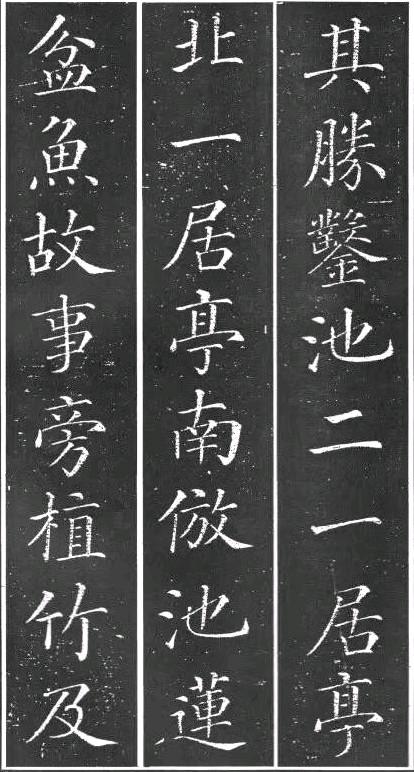 其勝鑿池二一居亭
北一居亭南倣池蓮
盆魚故事旁植竹及